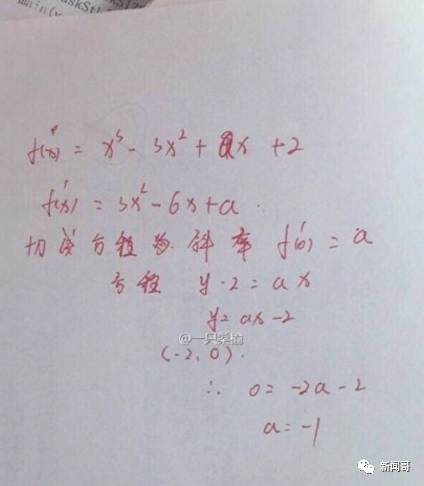 f(x) = x³ - 3x² + ax + 2
f'(x) = 3x² - 6x + a.
切线方程为 斜率 f'(0) = a
方程 y-2 = ax
y = ax - 2
@一只梨榆
(-2, 0).
∴ 0 = -2a - 2
a = -1
新闻哥